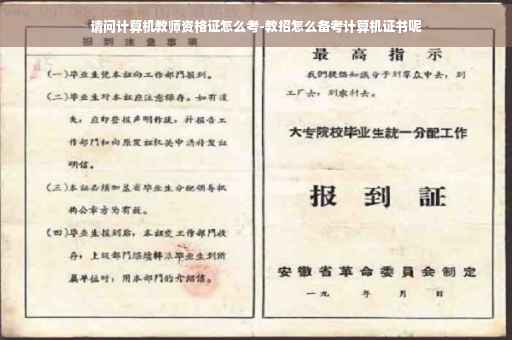 请问计算机教师资格证怎么考-教招怎么备考计算机证书呢
报到注意事项
(一)毕业生凭本证向工作部门报到。
(二)毕业生对本证应注意保存。如有遗
失，应即登报声明作废，并报告工
作部门和向原发证机关申请补发证
明信。
(三)本证必须加盖省毕业生分配领导机
构公章方为有效。
(四)毕业生报到后，本证交工作部门收
存；上级部门继续转派毕业生到所
属单位时，用本部门的介绍信。
最高指示
我们提倡知识分子到群众中去，到
工厂去，到农村去。
大专院校毕业生統一分配工作
报到証
安徽省革命委員会制定
一九 年 月 日